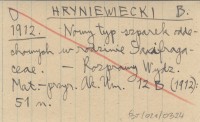 HRYNIEWIECKI B.
1912. Nowy typ szparek odde-
chowych w rodzinie Saxifraga-
ceae. — Rozprawy Wydz.
Mat.-przyr. Ak. Um. 12 B (1912):
51 n.